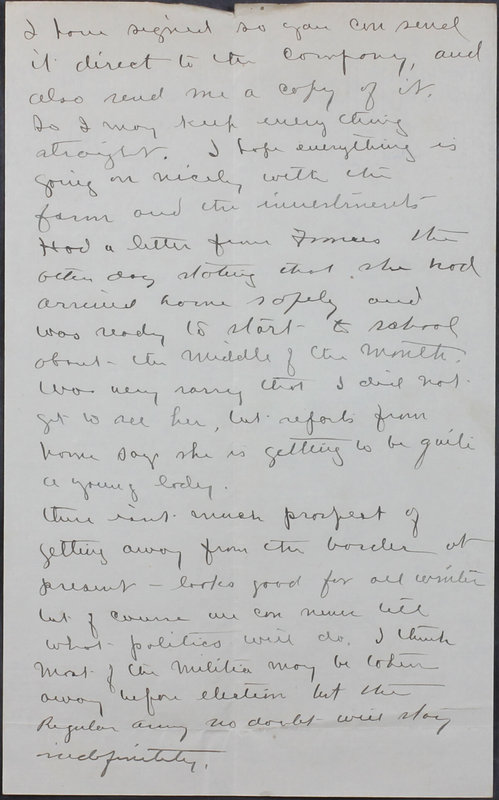 I have signed so you can send
it direct to the Company, and
also send me a copy of it.
So I may keep every thing
straight. I hope everything is
going on nicely with the
farm and the investments
Had a letter from Frances the
other day stating that she had
arrived home safely and
was ready to start to school
about the middle of the month.
Was very sorry that I did not
get to see her, but reports from
home say she is getting to be quite
a young lady.
There isnt much prospect of
getting away from the border at
present - looks good for all winter
but of course we can never tell
what politics will do. I think
most of the militia may be taken
away before election but the
Regular army no doubt will stay
indefinitely.